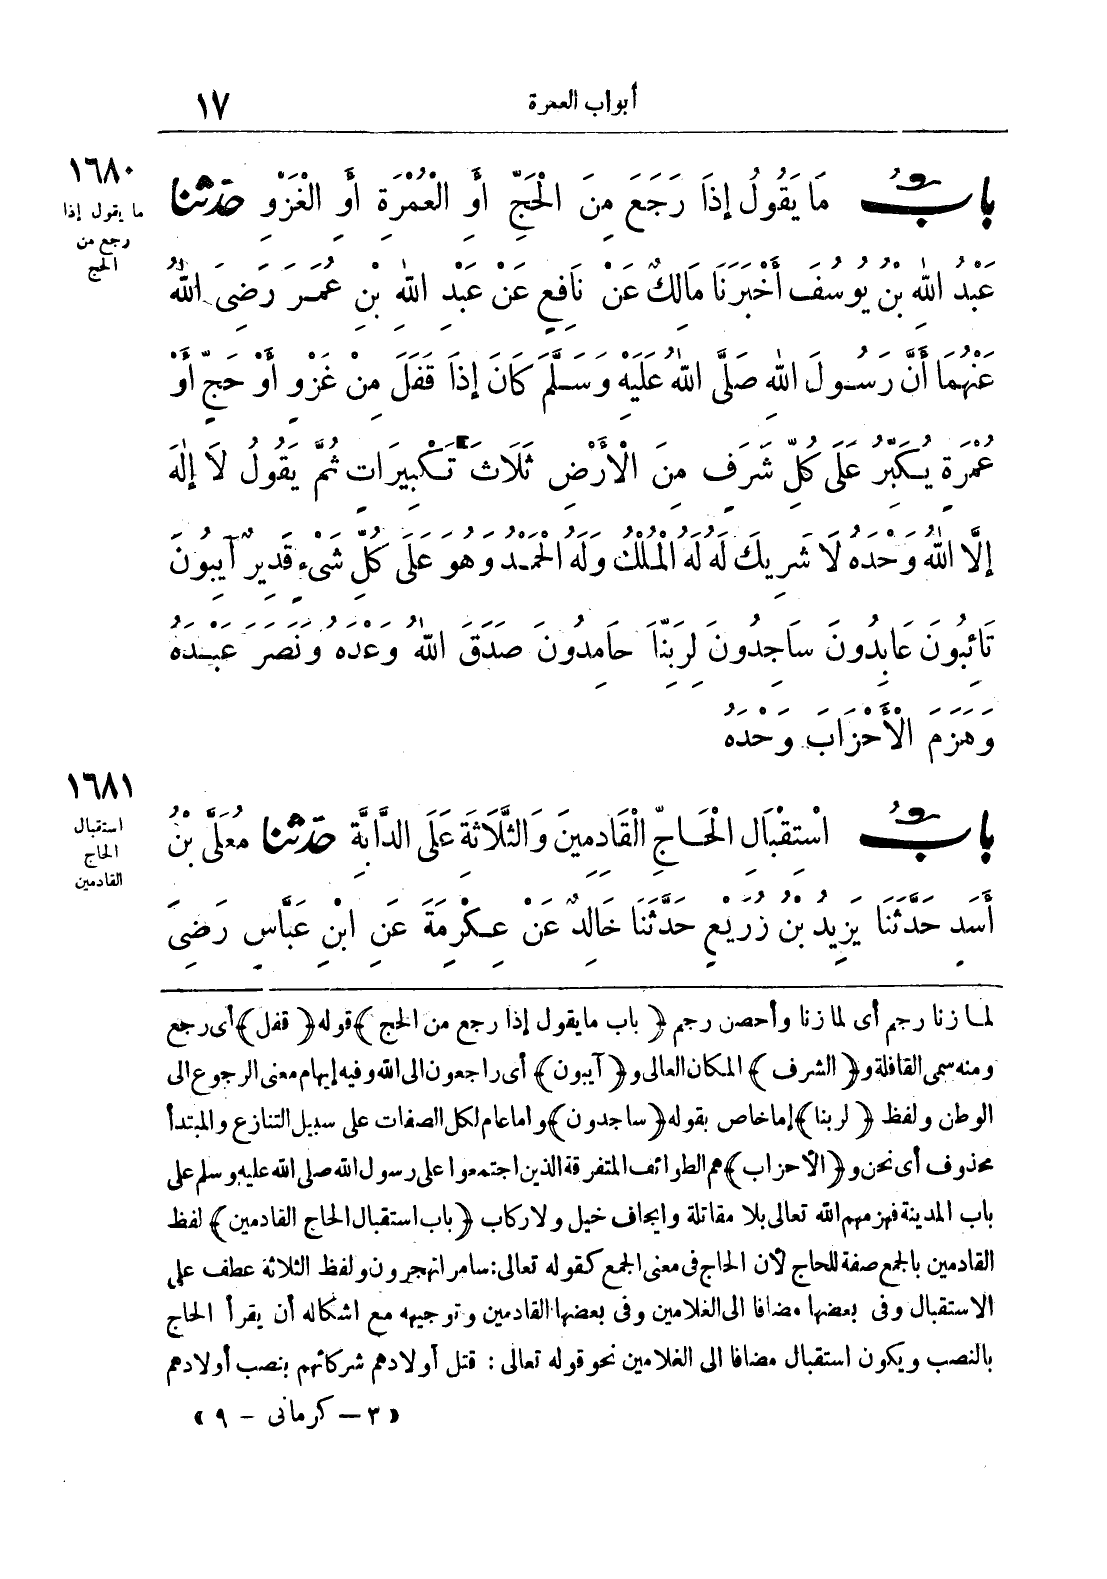 أبواب العمرة
١٧
١٦٨٠
ما يقول إذا
رجع من
الحج
بابٌ مَا يَقُولُ إِذَا رَجَعَ مِنَ الْحَجِّ أَوِ الْعُمْرَةِ أَوِ الْغَزْوِ حَدّثنا
عَبْدُ اللهِ بْنُ يُوسُفَ أَخْبَرَنَا مَالِكٌ عَنْ نَافِعٍ عَنْ عَبْدِ اللهِ بْنِ عُمَرَ رَضِيَ اللهُ
عَنْهُمَا أَنَّ رَسُولَ اللهِ صَلَّى اللهُ عَلَيْهِ وَسَلَّمَ كَانَ إِذَا قَفَلَ مِنْ غَزْوٍ أَوْ حَجٍّ أَوْ
عُمْرَةٍ يُكَبِّرُ عَلَى كُلِّ شَرَفٍ مِنَ الْأَرْضِ ثَلَاثَ تَكْبِيرَاتٍ ثُمَّ يَقُولُ لَا إِلٰهَ
إِلَّا اللهُ وَحْدَهُ لَا شَرِيكَ لَهُ لَهُ الْمُلْكُ وَلَهُ الْحَمْدُ وَهُوَ عَلَى كُلِّ شَيْءٍ قَدِيرٌ آيِبُونَ
تَائِبُونَ عَابِدُونَ سَاجِدُونَ لِرَبِّنَا حَامِدُونَ صَدَقَ اللهُ وَعْدَهُ وَنَصَرَ عَبْدَهُ
وَهَزَمَ الْأَحْزَابَ وَحْدَهُ
١٦٨١
استقبال
الحاج
القادمين
بابٌ اسْتِقْبَالِ الْحَاجِّ الْقَادِمِينَ وَالثَّلَاثَةِ عَلَى الدَّابَّةِ حَدّثنا مُعَلَّى بْنُ
أَسَدٍ حَدَّثَنَا يَزِيدُ بْنُ زُرَيْعٍ حَدَّثَنَا خَالِدٌ عَنْ عِكْرِمَةَ عَنِ ابْنِ عَبَّاسٍ رَضِيَ
لما زنا رجم أى لما زنا وأحصن رجم ﴿باب ما يقول إذا رجع من الحج﴾ قوله ﴿قفل﴾ أى رجع
ومنه سمى القافلة و﴿الشرف﴾ المكان العالى و﴿آيبون﴾ أى راجعون الى الله وفيه إيهام معنى الرجوع الى
الوطن ولفظ ﴿لربنا﴾ إما خاص بقوله ﴿ساجدون﴾ واما عام لكل الصفات على سبيل التنازع والمبتدأ
محذوف أى نحن و﴿الأحزاب﴾ هم الطوائف المتفرقة الذين اجتمعوا على رسول الله صلى الله عليه وسلم على
باب المدينة فهزمهم الله تعالى بلا مقاتلة وايجاف خيل ولا ركاب ﴿باب استقبال الحاج القادمين﴾ لفظ
القادمين بالجمع صفة للحاج لأن الحاج فى معنى الجمع كقوله تعالى: سامرا تهجرون ولفظ الثلاثة عطف على
الاستقبال وفى بعضها مضافا الى الغلامين وفى بعضها القادمين وتوجيهه مع اشكاله أن يقرأ الحاج
بالنصب ويكون استقبال مضافا الى الغلامين نحو قوله تعالى: قتل أولادهم شركائهم بنصب أولادهم
« ٣ — كرمانى - ٩ »